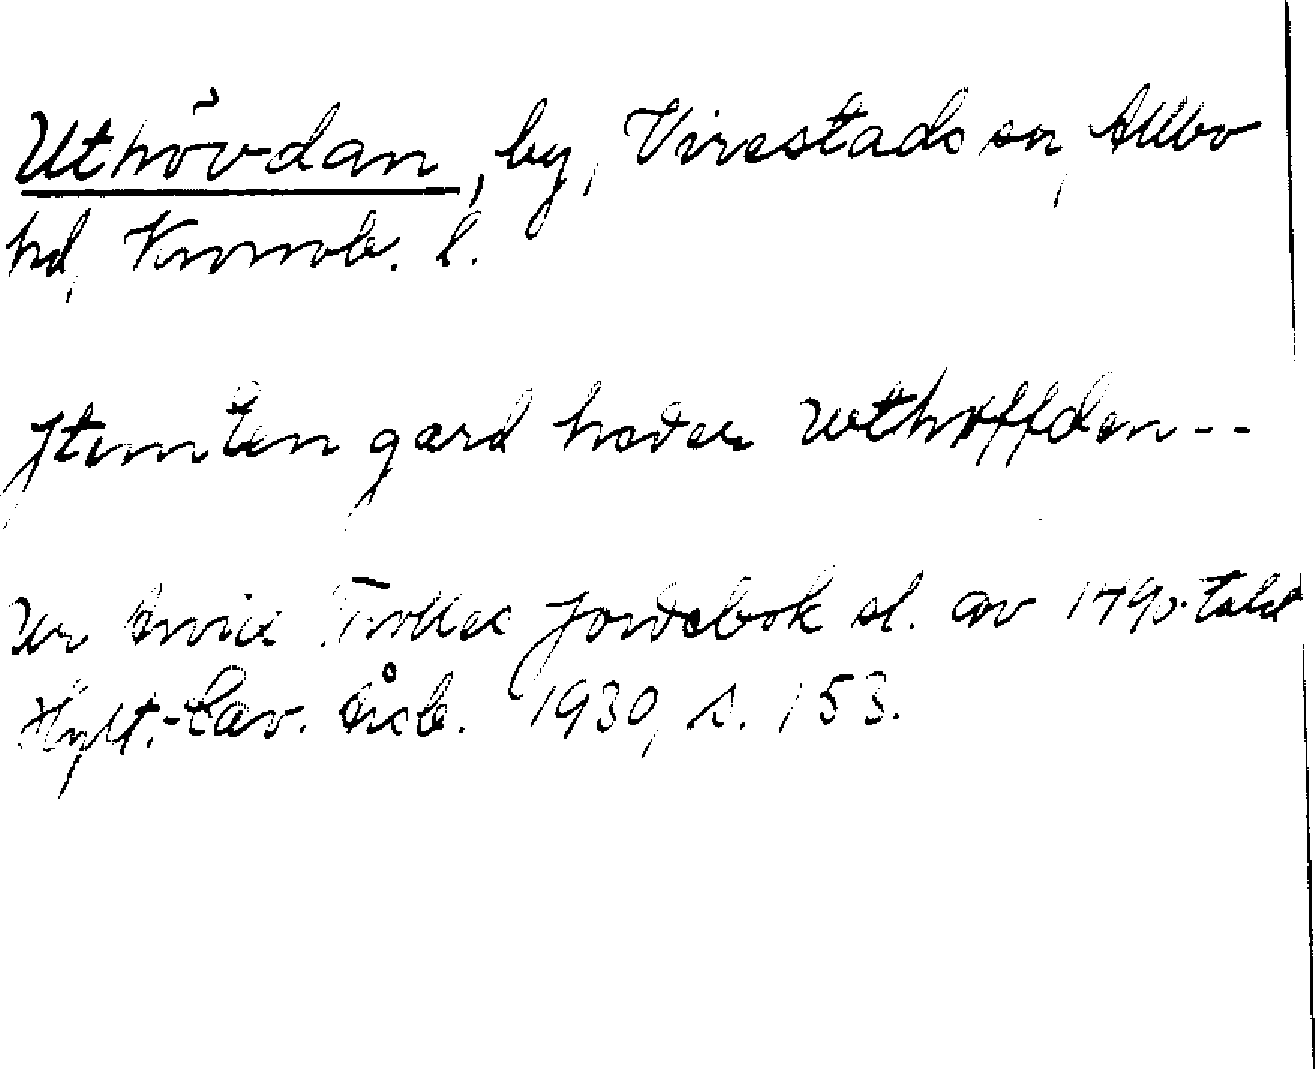 Uthövdan, by, Virestads sn, Allbo
hd, Kronob. l.
Jtem en gard heder vthøffden--
Ur Arvid Trolles jordebok sl. av 1490-talet
Hylt.-Cav. Årsb. 1930, s. 153.